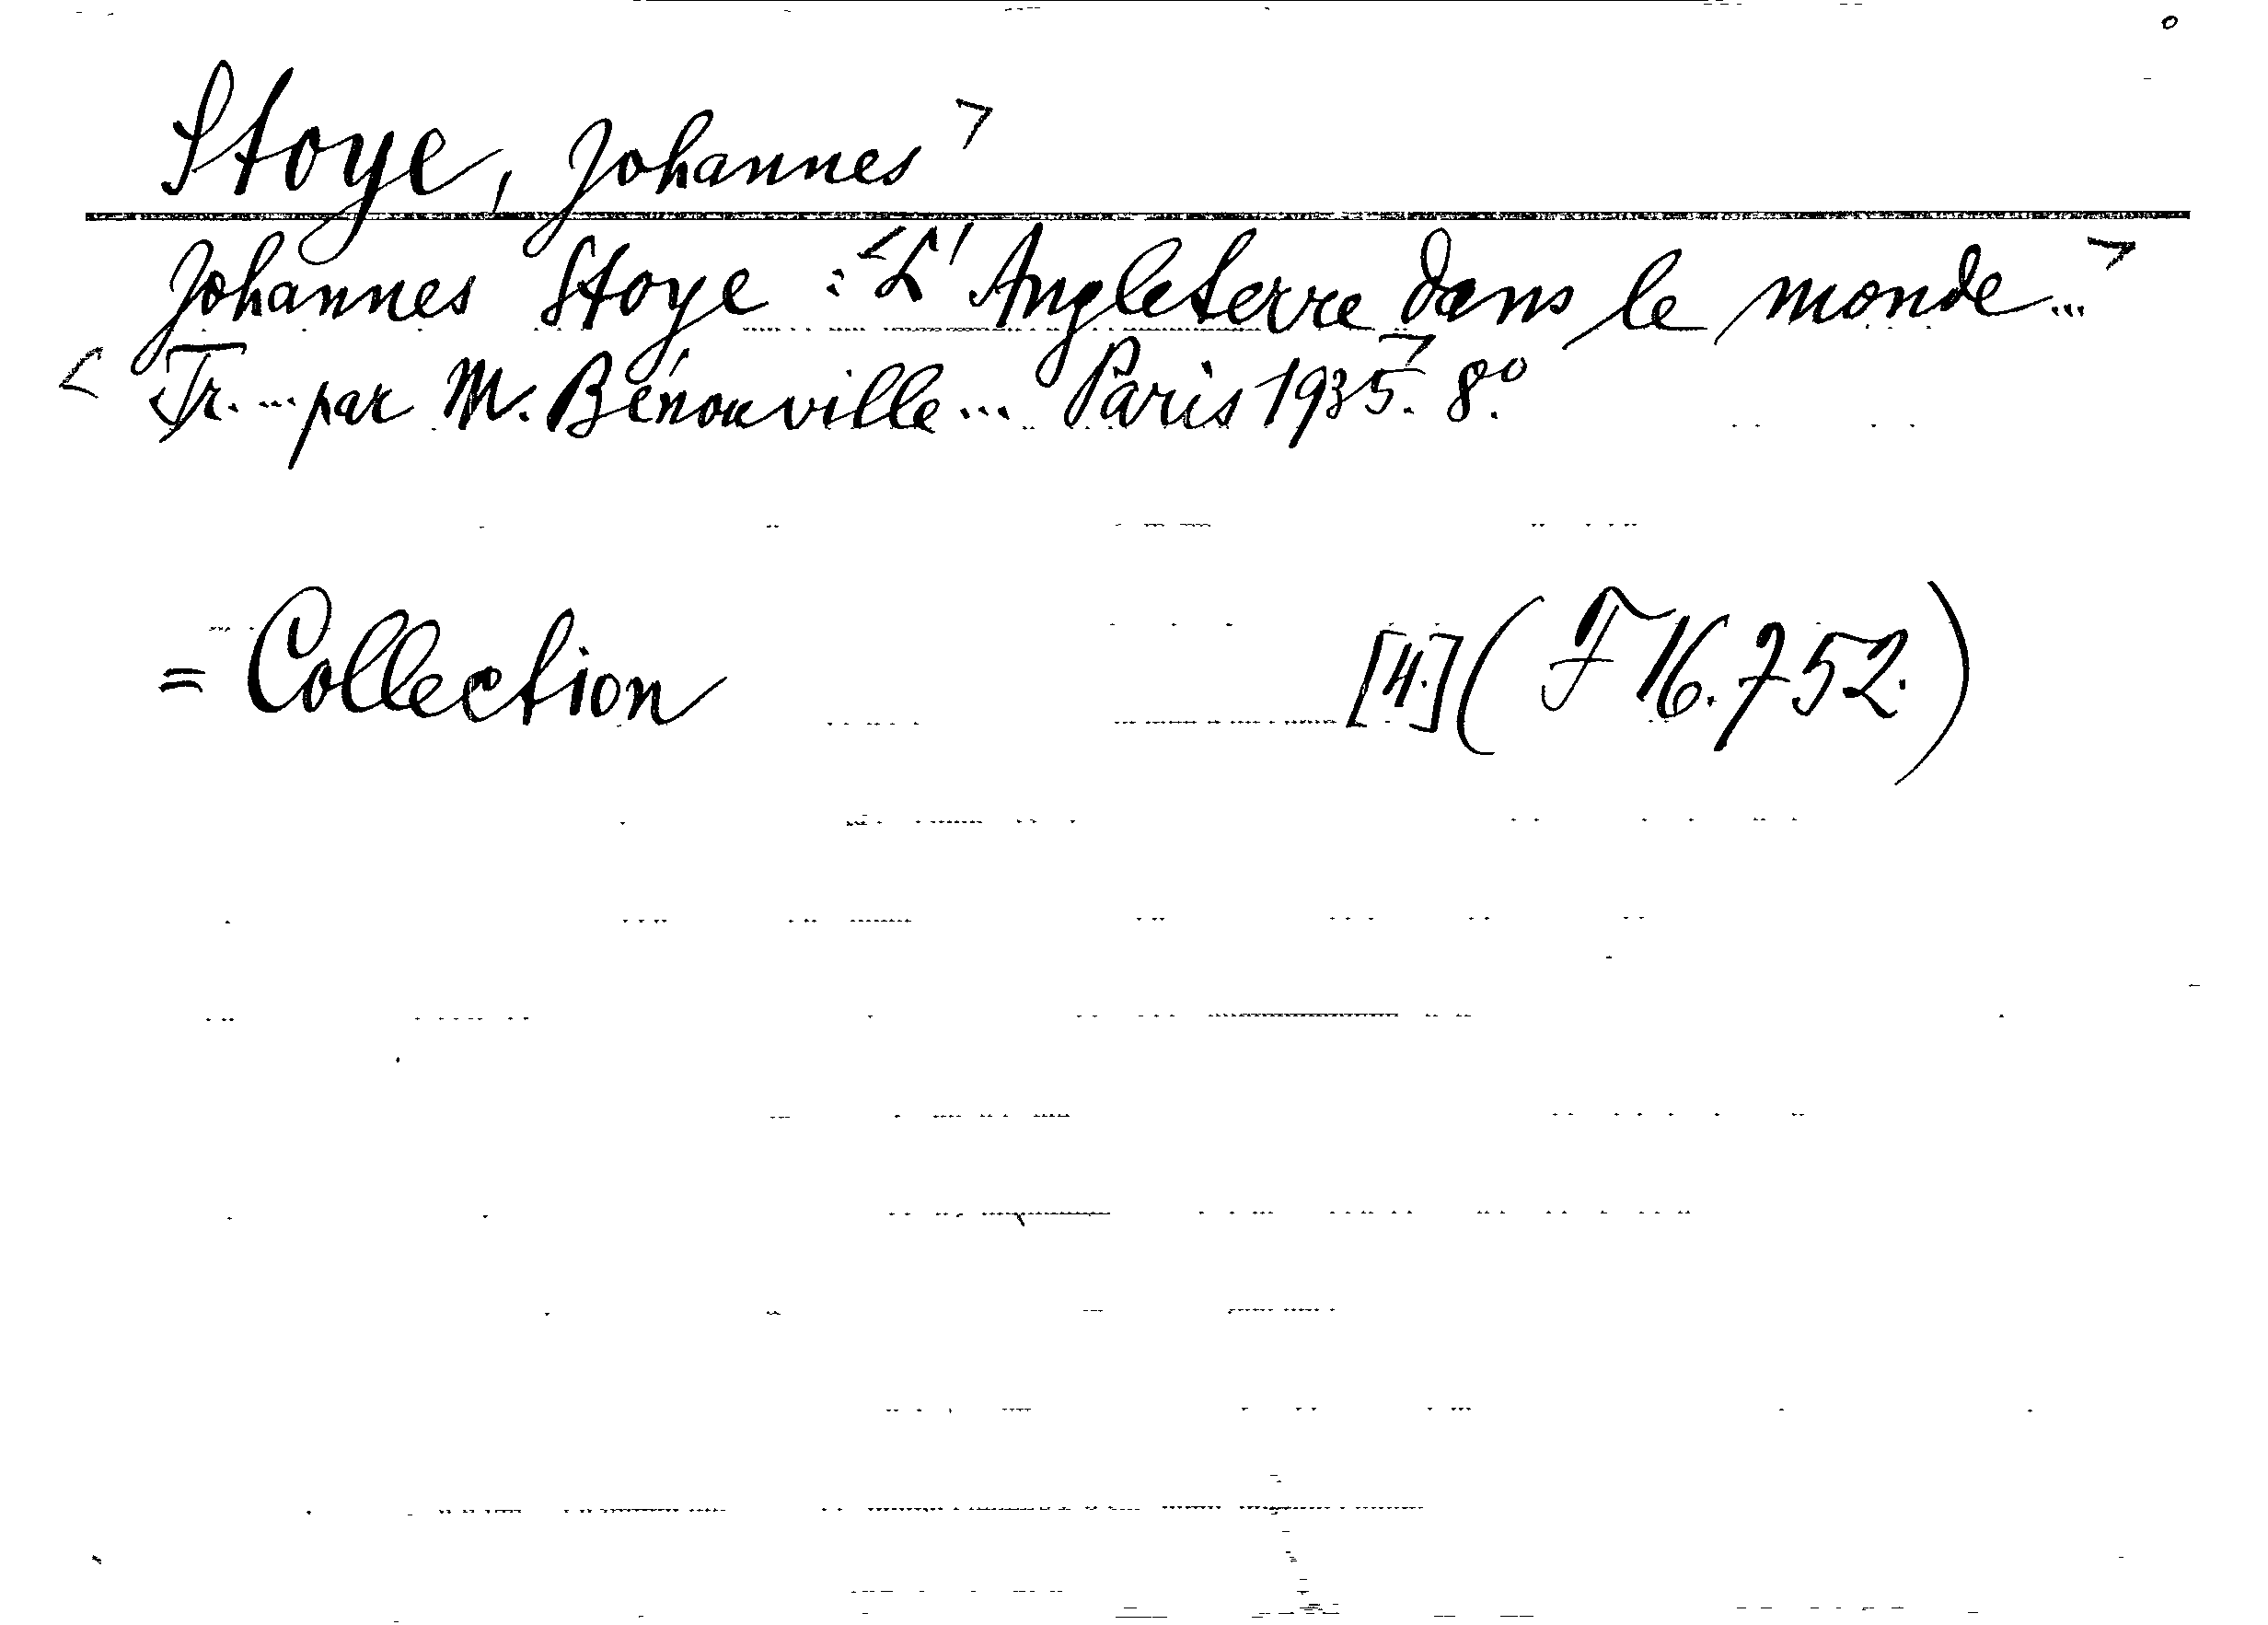 Stoye, Johannes >
Johannes Stoye : < L'Angleterre dans le monde... >
< Tr. ... par M. Bénouville... Paris 1935. > 8.º
= Collection [4.] ( F 16.752. )